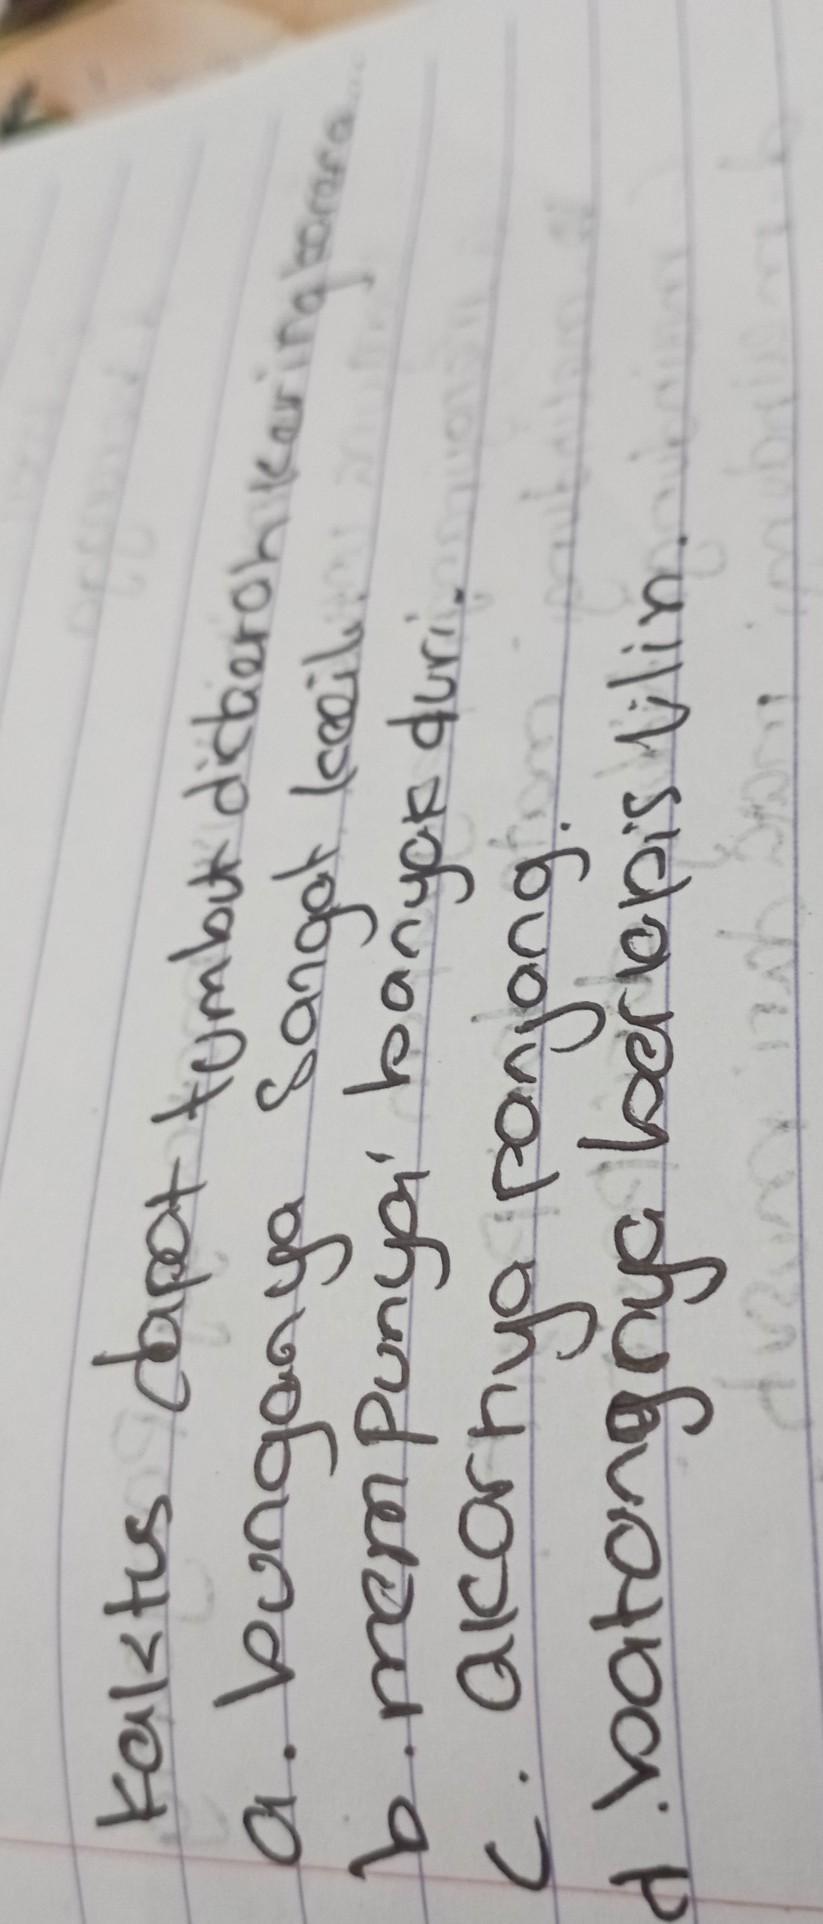 Kaktus dapat tumbuh didaerah kering karena...
a. bunganya sangat kecil.
b. mempunyai banyak duri.
c. akarnya panjang.
d. batangnya berlapis lilin.